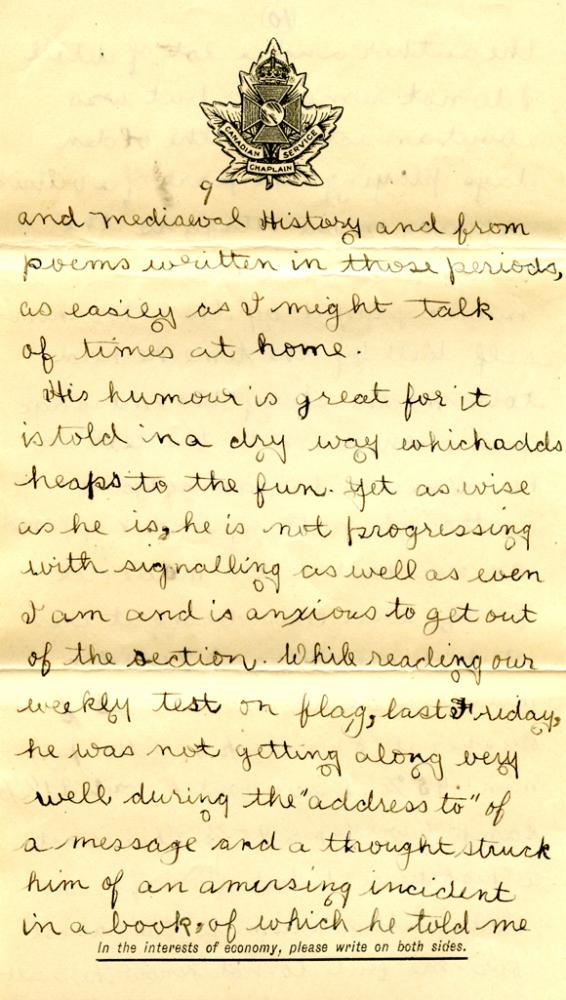 CANADIAN SERVICE
CHAPLAIN
9
and mediaeval History and from
poems written in those periods,
as easily as I might talk
of times at home.
His humour is great for it
is told in a dry way which adds
heaps to the fun. Yet as wise
as he is, he is not progressing
with signalling as well as even
I am and is anxious to get out
of the section. While reading our
weekly test on flag, last Friday,
he was not getting along very
well during the "address to" of
a message and a thought struck
him of an amusing incident
in a book, of which he told me
In the interests of economy, please write on both sides.